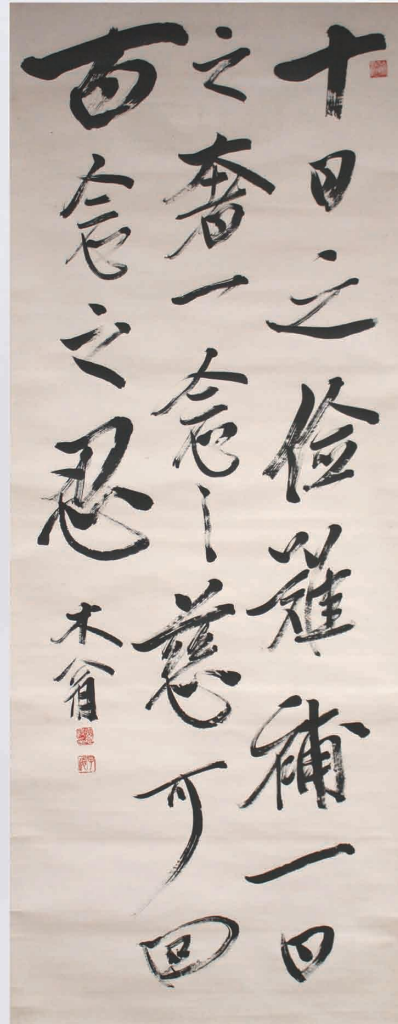 十日之儉難補一日
之奢一念之慈可回
百念之忍
木翁